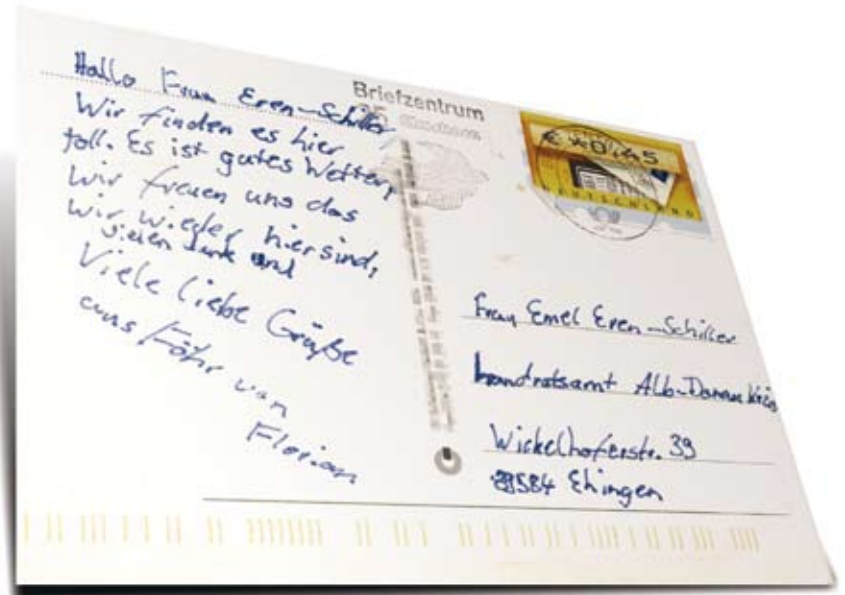 Hallo Frau Eren-Schiller,
Wir finden es hier
toll. Es ist gutes Wetter,
Wir freuen uns das
wir wieder hier sind,
vielen Dank und
Viele liebe Grüße
aus Föhr von
Florian
Briefzentrum
25
€*0,45
DEUTSCHLAND
Frau Emel Eren-Schiller
Landratsamt Alb-Donau Kreis
Wickelhoferstr. 39
89584 Ehingen